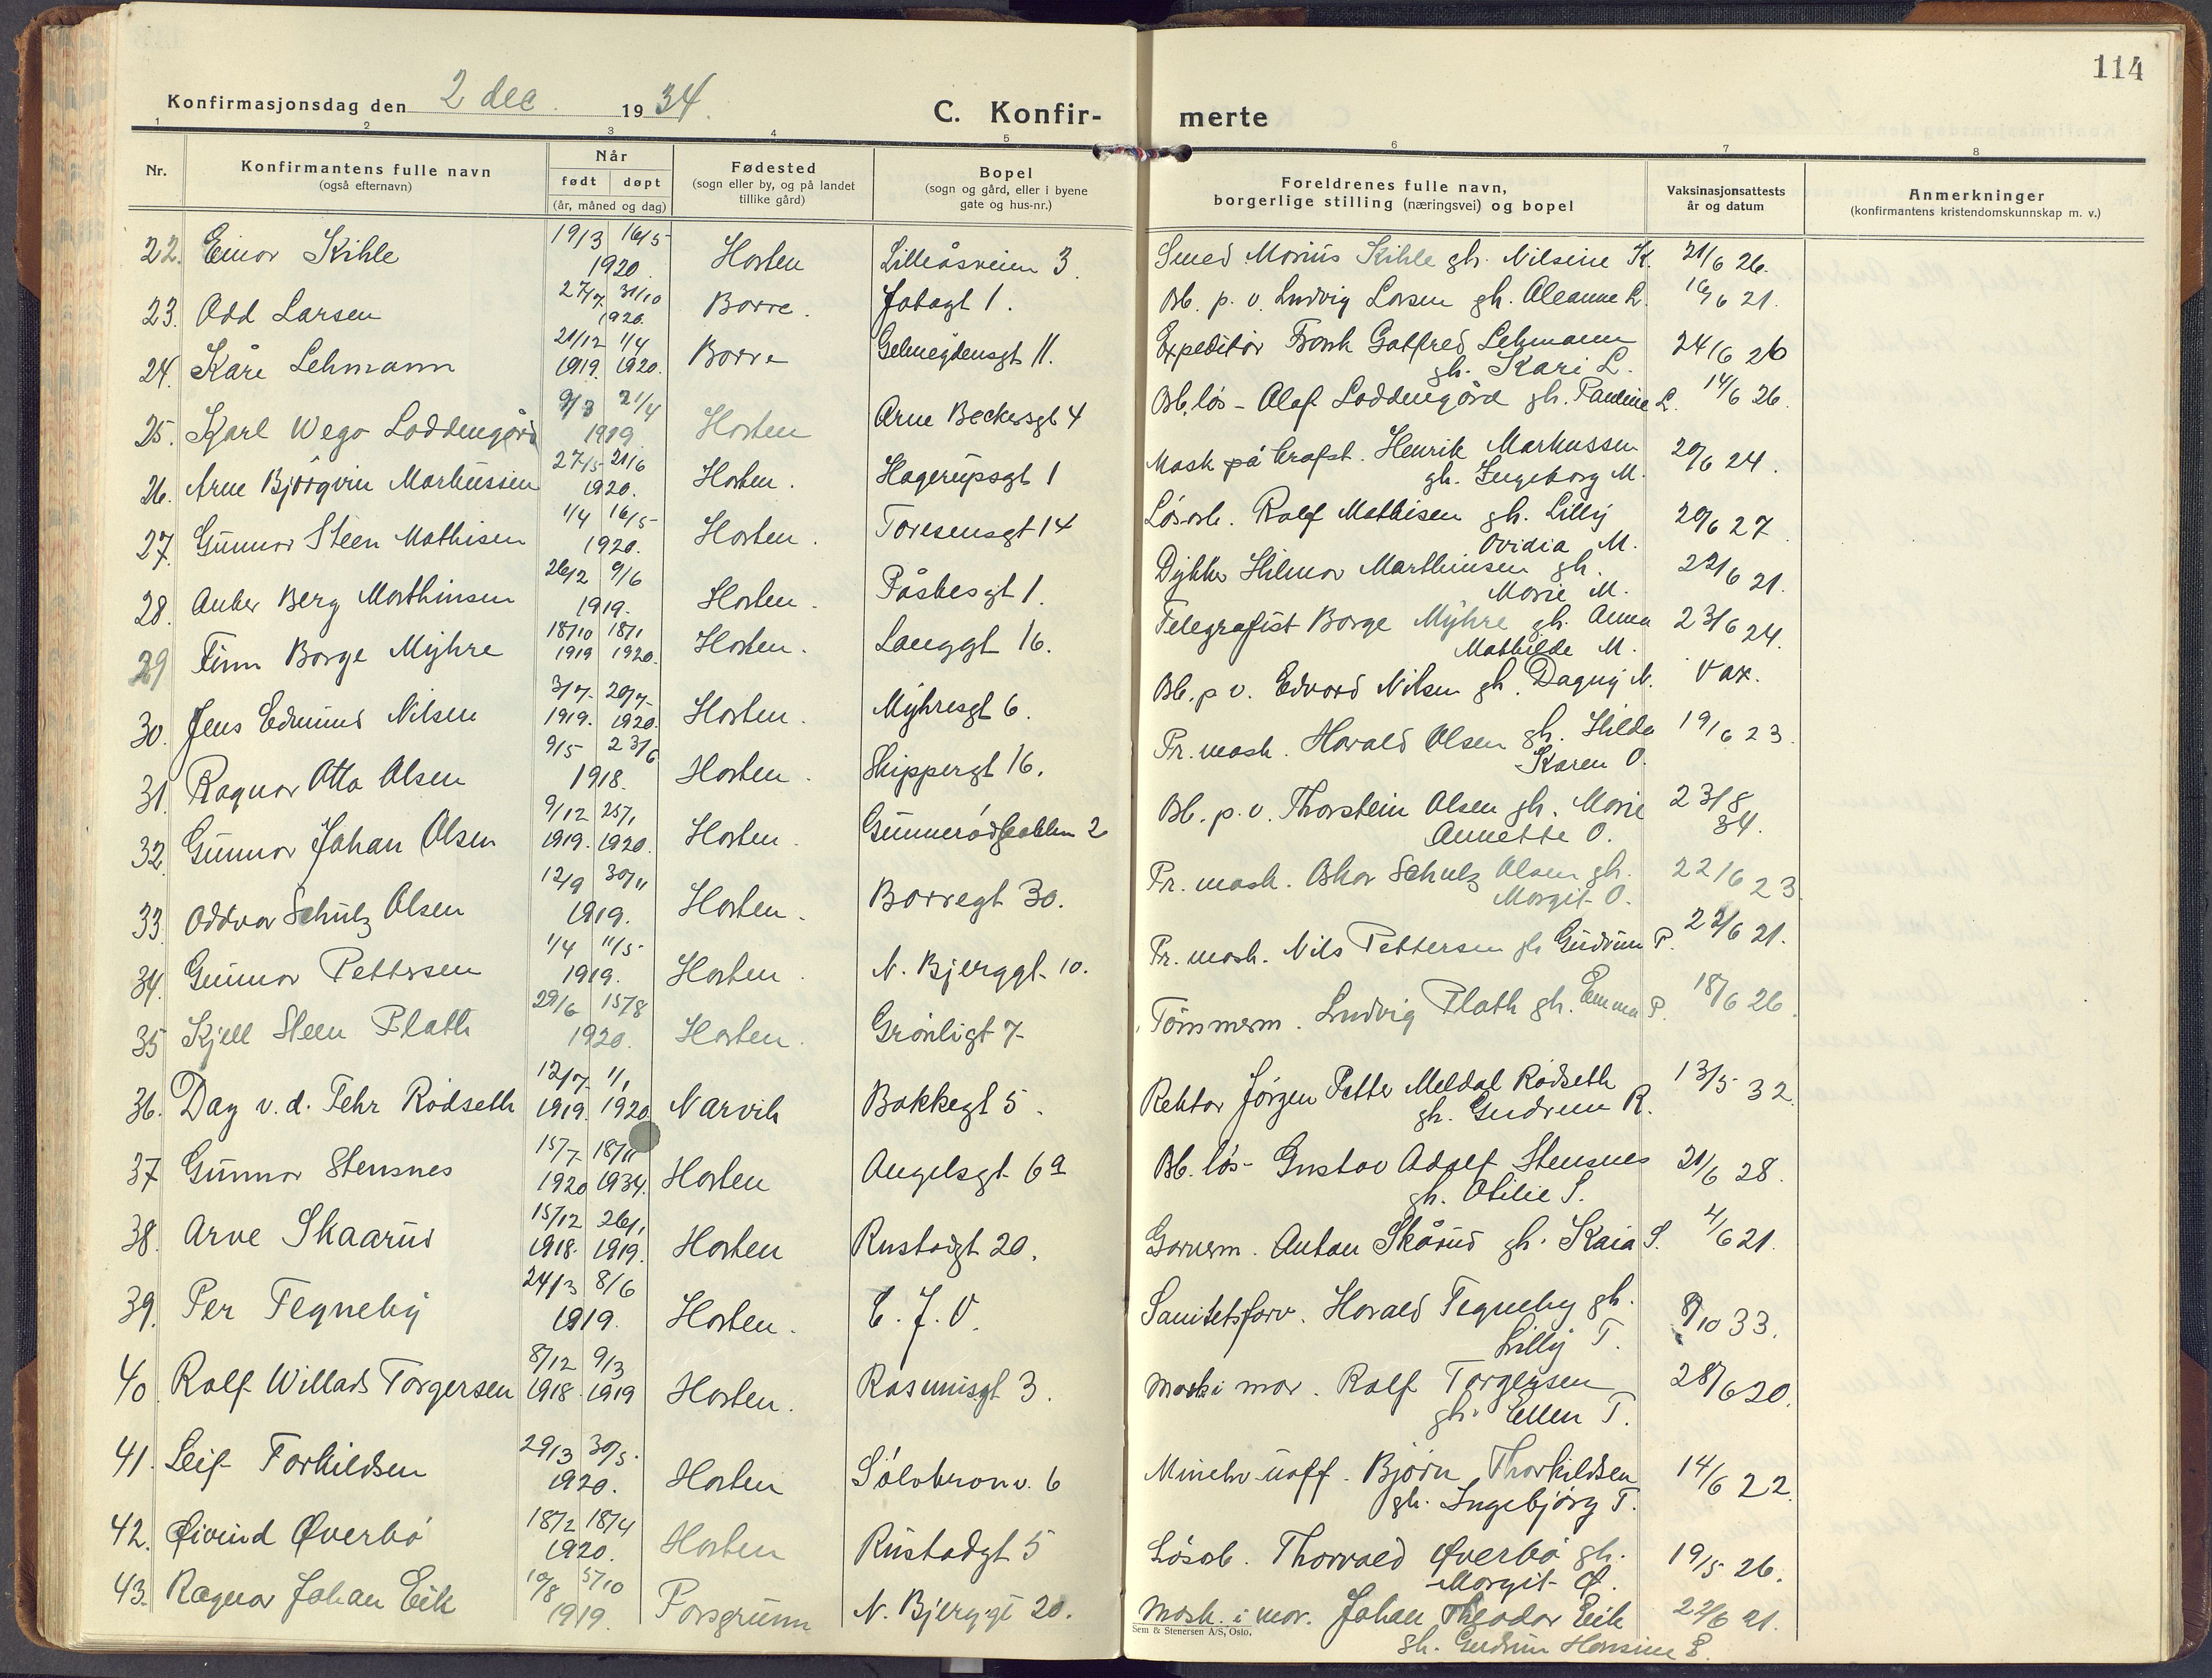 114
Konfirmasjonsdag den 2 dec. 1934.
C. Konfir- merte
1 2 3 4 5 6 7 8
Nr.
Konfirmantens fulle navn
(også efternavn)
Når
født døpt
(år, måned og dag)
Fødested
(sogn eller by, og på landet
tillike gård)
Bopel
(sogn og gård, eller i byene
gate og hus-nr.)
Foreldrenes fulle navn,
borgerlige stilling (næringsvei) og bopel
Vaksinasjonsattests
år og datum
Anmerkninger
(konfirmantens kristendomskunnskap m. v.)
22. Einar Kihle 19/3 16/5 1920. Horten Lilleåsveien 3. Smed Marius Kihle gh. Nilsine K. 21/6 26.
23. Odd Larsen 27/7 31/10 1920. Borre. Jatagt 1. Arb. p. v. Ludvig Larsen gh. Aleanne L. 16/6 21.
24. Kåre Lehmann 21/12 1919. 1/4 1920. Borre 11. Expeditør Frank Gotfred Lehmann
gh. Kari L. 24/6 26
25. Karl Wego Loddengård 9/3 21/4 1919 Horten Arne Beckersgt 4 Arb. løs- Olaf Loddengård gh. Pauline L. 14/6 26.
26. Arne Bjørgvin Markussen 27/5 21/6 1920. Horten. Hagerupsgt 1 Mask på Henrik Markussen
gh. Ingeborg M. 20/6 24.
27. Gunnar Steen Mathisen 1/4 16/5 1920. Horten. Toresensgt 14 Løsarb. Ralf Mathisen gh. Lilly
Ovidia M. 29/6 27
28. Anker Berg Marthinsen 26/2 9/6 1919. Horten. Påskesgt 1. Dykker Hilmar Marthinsen gh.
Marie M. 22/6 21.
29 Finn Borge Myhre 18/10 1919 18/1 1920. Horten. Langgt 16. Telegrafist Borge Myhre gh. Anna
Mathilde M. 23/6 24.
30. Jens Edmund Nilsen 3/7 1919. 20/7 1920. Horten. Myhresgt 6. Arb. p v. Edvard Nilsen gh. Dagny N. Vax.
31. Ragnar Otto Olsen 9/5 23/6 1918. Horten. Skippergt 16. Pr. mask. Harald Olsen gh. Hilda
Karen O. 19/6 23.
32. Gunnar Johan Olsen 9/12 1919. 25/1 1920. Horten. Gunnerødbakken 2 Arb. p. v. Thorstein Olsen gh. Marie
Annette O. 23/8 34.
33. Oddvar Schulz Olsen 12/9 30/11 1919. Horten. Borregt 30. Pr. mask. Oskar Schulz Olsen gh.
Margit O. 22/6 23
34. Gunnar Pettersen 1/4 11/5 1919. Horten. N. Bjerggt. 10. Pr. mask. Nils Pettersen gh Gudrun P. 22/6 21.
35 Kjell Steen Plath 29/6 15/8 1920. Horten. Grønligt 7- Tømmerm. Ludvig Plath gh. Emma P. 18/6 26.
36. Dag v. d. Fehr Rødseth 12/7 1919. 1/1 1920. Narvik Bakkegt 5. Rektor Jørgen Petter Meldal Rødseth
gh. Gudrun R. 13/5 32.
37 Gunnar Stensnes 15/7 1920 18/11 1934. Horten Angelsgt 6a Arb. løs- Gustav Adolf Stensnes
gh. Otilie S. 21/6 28.
38. Arve Skaarud 15/12 1918. 26/1 1919. Horten Rustadgt 20. Garverm. Anton Skårud gh. Kaia S. 4/6 21.
39. Per Tegneby 24/3 8/6 1919. Horten. E. J. V. Sanitetsforv. Harald Tegneby gh.
Lilly T. 8/10 33.
40. Rolf Willads Torgersen 8/12 1918. 9/3 1919 Horten. Rasmusgt 3. Mask i mar. Ralf Torgersen
gh. Ellen T. 28/6 20.
41. Leif Torkildsen 29/3 30/5 1920. Horten Sølvkronv. 6 Minekv-uoff. Bjørn Thorkildsen
gh. Ingebjørg T. 14/6 22.
42. Øivind Øverbø 18/2 18/4 1920. Horten Rustadgt 5 Løsarb. Thorvald Øverbø gh.
Margit Ø. 19/5 26.
43. Ragnar Johan Eik 10/8 5/10 1919. Porsgrunn N. Bjerggt 20. Mask. i mar. Johan Theodor Eik
gh. Gudrun Hansine E. 22/6 21.
Sem & Stenersen A/S, Oslo.